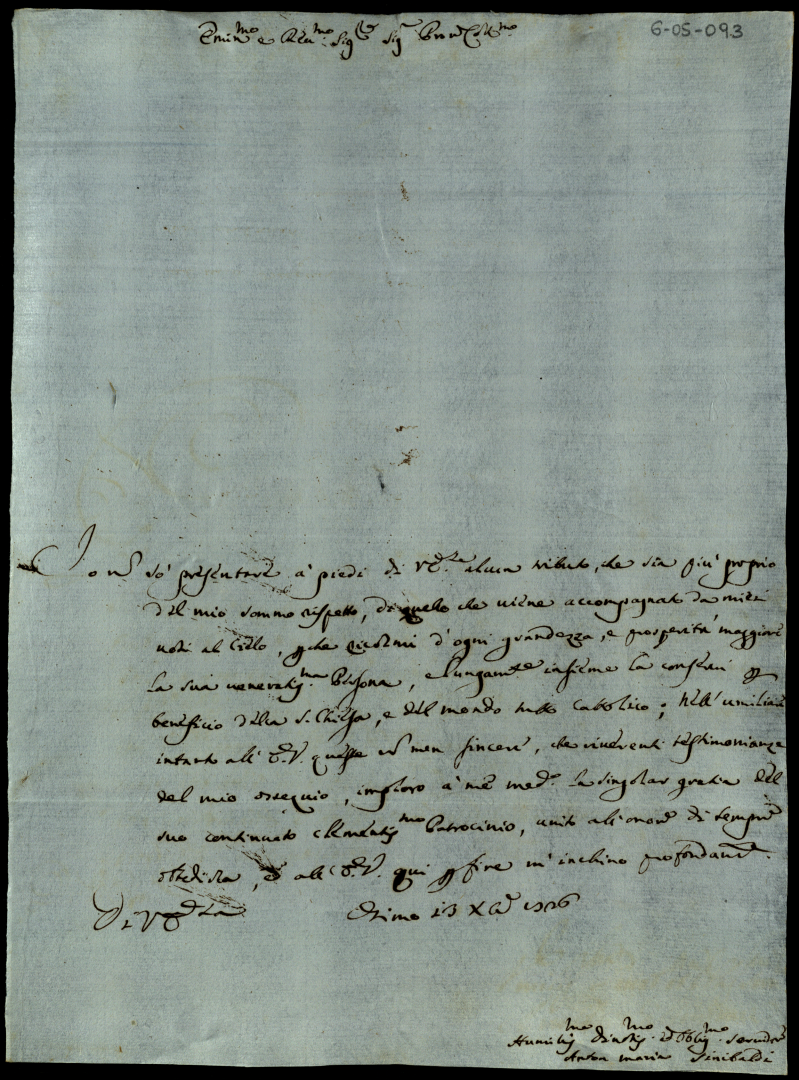 Emin.mo e Rev.mo Sig.re Sig.r Pron Col.mo
6-05-093
Io nō sò presentare a' piedi di V. Em.za alcun tributo, che sia più proprio
del mio sommo rispetto, di quello che viene accompagnato da miei
voti al Cielo, pche ricolmi d'ogni grandezza, e prosperità maggiore
la sua veneratiss.ma Persona, e lungam.te insieme la conservi p
beneficio della S. Chiesa, e del mondo tutto Catolico; Nell'umiliare
intanto all'E.V. queste nō men sincere, che riverenti testimonianze
del mio ossequio, imploro à me med.o la singolar gratia del
suo continuato clementiss.mo Patrocinio, unito all'onore di sempre
obedirla, e all'E.V. qui p fine m'inchino profondam.e
Di V. Em.za Osimo 13 Xbre 1706
Humiliss.mo Divotiss.mo ed Obblig.mo Servidore
Anton Maria Sinibaldi